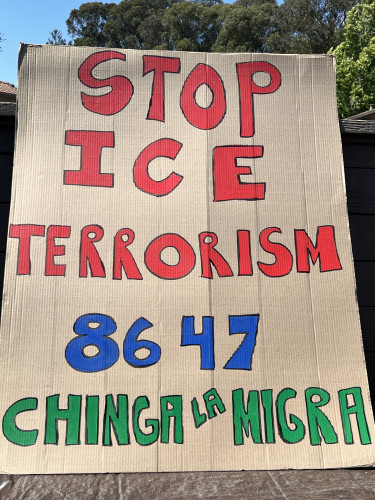 STOP
ICE
TERRORISM
86 47
CHINGA LA MIGRA